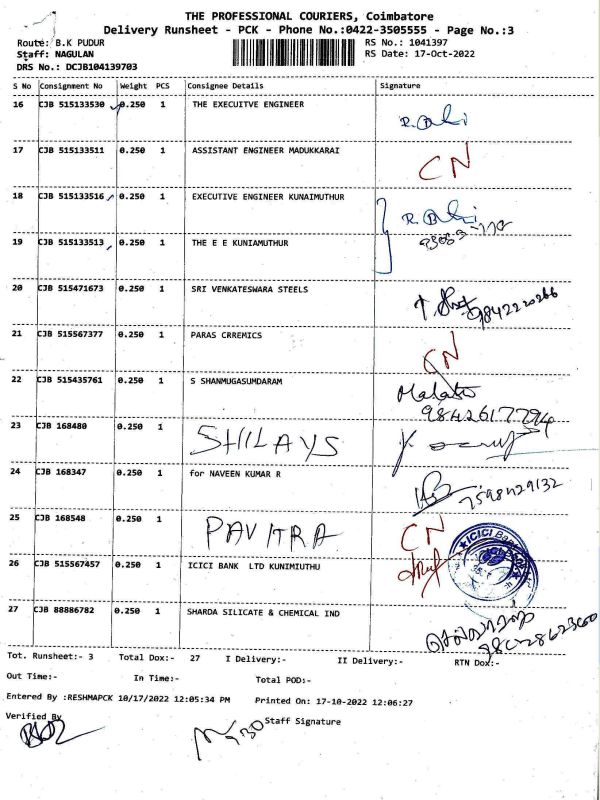 THE PROFESSIONAL COURIERS, Coimbatore
Delivery Runsheet - PCK - Phone No.:0422-3505555 - Page No.:3
Route: B.K PUDUR RS No.: 1041397
Staff: NAGULAN RS Date: 17-Oct-2022
DRS No.: DCJB104139703
S No Consignment No Weight PCS Consignee Details Signature
16 CJB 515133530 0.250 1 THE EXECUITVE ENGINEER
17 CJB 515133511 0.250 1 ASSISTANT ENGINEER MADUKKARAI CN
18 CJB 515133516 0.250 1 EXECUTIVE ENGINEER KUNAIMUTHUR
19 CJB 515133513 0.250 1 THE E E KUNIAMUTHUR
20 CJB 515471673 0.250 1 SRI VENKATESWARA STEELS 9842220266
21 CJB 515567377 0.250 1 PARAS CRREMICS CN
22 CJB 515435761 0.250 1 S SHANMUGASUMDARAM
9842617794
23 CJB 168480 0.250 1 SHILAYS
24 CJB 168347 0.250 1 for NAVEEN KUMAR R 7598429132
25 CJB 168548 0.250 1 PAVITRA CN
26 CJB 515567457 0.250 1 ICICI BANK LTD KUNIMIUTHU ICICI Bank
27 CJB 88886782 0.250 1 SHARDA SILICATE & CHEMICAL IND
Tot. Runsheet:- 3 Total Dox:- 27 I Delivery:- II Delivery:- RTN Dox:-
Out Time:- In Time:- Total POD:-
Entered By :RESHMAPCK 10/17/2022 12:05:34 PM Printed On: 17-10-2022 12:06:27
Verified By Staff Signature